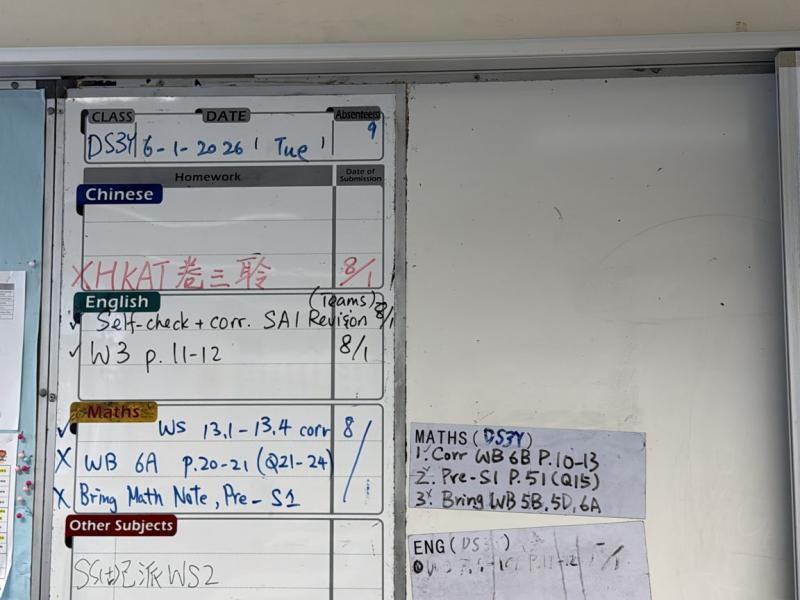 CLASS DATE Absentees
DS3Y 6-1-2026 Tue 9
Homework Date of Submission
Chinese
X HKAT 卷三聆 8/1
English
(Teams)
✓ Self-check + corr. SA1 Revision 8/1
✓ W3 p.11-12 8/1
Maths
✓ WS 13.1-13.4 corr 8/1
X WB 6A p.20-21 (Q21-24)
X Bring Math Note, Pre-S1
Other Subjects
派WS2
MATHS (DS3Y)
1. Corr WB 6B P.10-13
2. Pre-S1 P.51 (Q15)
3. Bring WB 5B, 5D, 6A
ENG (DS3